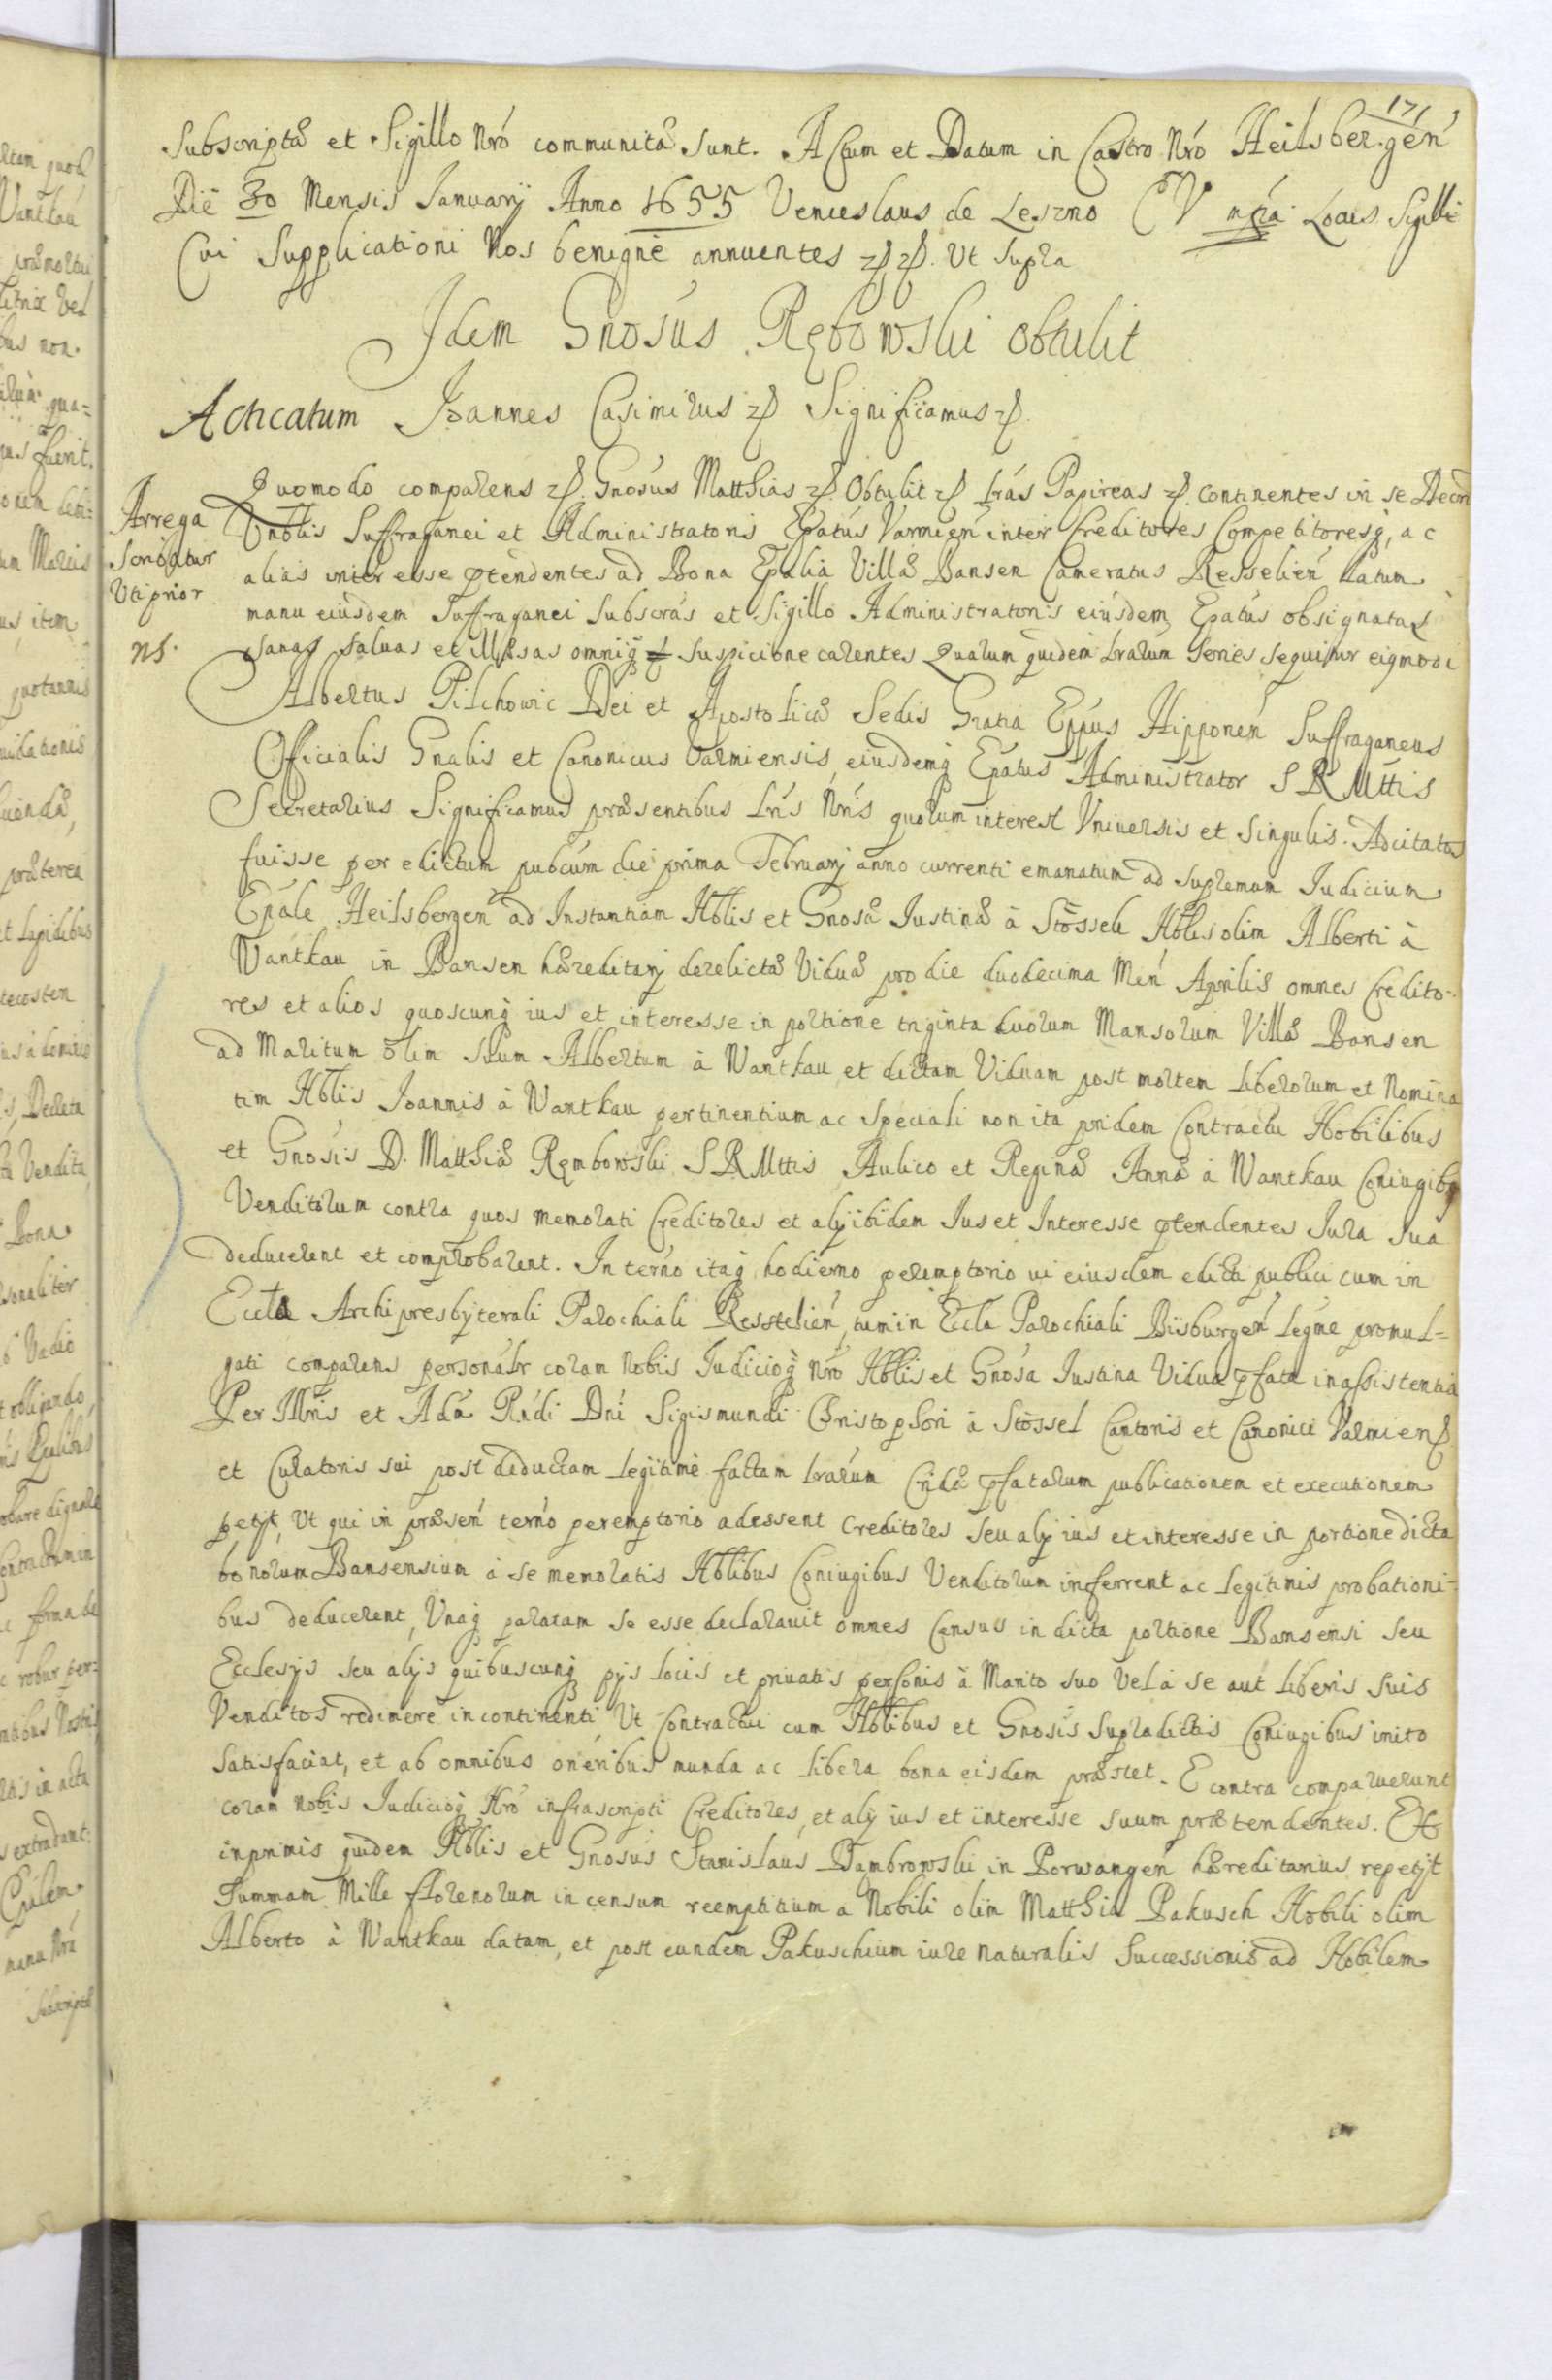 171
Subscriptæ et Sigillo Nró communitæ sunt. Actum et Datum in Castro Nró Heilsbergén
Die 30 Mensis Januarÿ Anno 1655 Venceslaus de Leszno EV mpia Locus Sigilli
Cui Supplicationi Nos benigne annuentes Ut supra
Idem Gnosús Rębowski obtulit
Acticatum Joannes Casimirus Significamus
Arrega
Scribatur
Uti prior
ns.
Quomodo comparens Gnosus Matthias Obtulit Lrás Papireas continentes in se Decrm
Suffraganei et Administratoris Epatús Varmień inter Creditores Competitoresq, ac
alias interesse ptendentes ad Bona Epalia Villæ Bansen Cameratus Resselień Latum
manu eiusdem Suffraganei subscras et Sigillo Administratoris eiusdem Epatús obsignatas
sanas saluas et illæsas omniq suspicione carentes Quarum quidem Lrarum Series sequitur eiqmodi
Albertus Pilchowic Dei et Apostolicæ Sedis Gratia Eppus Hipponeń Suffraganeus
Officialis Gnalis et Canonicus Varmiensis, eiusdemq Epatus Administrator S R Mttis
Secretarius Significamus præsentibus Lris Nris quorum interest Vniuersis et Singulis. Adcitatos
fuisse per edictum pubcum die prima Februarÿ anno currenti emanatum ad supremum Iudicium
Epale Heilsbergeń ad Instantiam Hblis et Gnosæ Iustinæ à Stösseln Hblis olim Alberti à
Wantkau in Bansen hæreditarÿ derelictæ Viduæ pro die duodecima Meń Aprilis omnes Credito-
res et alios quoscunq ius et interesse in portione triginta duorum Mansorum Villæ Bansen
ad Maritum olim suum Albertum à Wantkau et dictam Viduam post mortem liberorum et Nomina
tim Hblis Joannis à Wantkau pertinentium ac speciali non ita pridem Contractu Nobilibus
et Gnosis D. Matthiæ Ręmbowski S R Mttis Aulico et Reginæ Annæ à Wantkau Coniugibq
Venditorum contra quos memorati Creditores et alÿ ibidem Ius et Interesse ptendentes Iura sua
deducerent et comprobarent. In terno itaq hodierno peremptorio ui eiusdem edicti publici cum in
Eccla Archipresbyterali Parochiali Resselień, tum in Eccla Parochiali Biisburgeń legme promul-
gati comparens personalr coram nobis Iudicioq Nro Hblis et Gnosa Iustina Vidua pfata in assistentia
Per Illris et Adm Rndi Dni Sigismundi Christophori à Stössel Cantoris et Canonici Varmien
et Curatoris sui post deductam legitime factam Lrarum Cridæ pfatarum publicationem et executionem
petÿt, Ut qui in præseń terno peremptorio adessent Creditores seu alÿ ius et interesse in portione dicta
bonorum Bansensium à se memoratis Hblibus Coniugibus Venditorum inferrent ac legitimis probationi-
bus deducerent, Vnaq paratam se esse declarauit omnes Census in dicta portione Bansensi seu
Ecclesÿs seu alÿs quibuscunq pÿs locis et priuatis personis à Marito suo vel à se aut liberis suis
Venditos redimere incontinenti Ut Contractui cum Hblibus et Gnosis supradictis Coniugibus inito
Satisfaciat, et ab omnibus oneribus munda ac libera bona eisdem præstet. E contra comparuerunt
coram nobis Iudicioq Nro infrascripti Creditores, et alÿ ius et interesse suum prætendentes. Et
inprimis quidem Hblis et Gnosus Stanislaus Dąmbrowski in Porwangeń hæreditarius repetÿt
Summam Mille florenorum in censum reemptitium a Nobili olim Matthia Pakusch Nobili olim
Alberto à Wantkau datam, et post eundem Pakuschium iure naturalis Successionis ad Nobilem